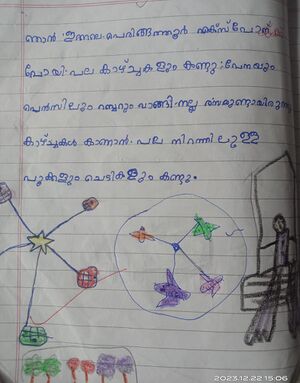 ഞാൻ ഇന്നലെ പെരിങ്ങത്തൂർ എക്സ്പോ
പോയി. പല കാഴ്ചകളും കണ്ടു; പേനയും
പെൻസിലും റബ്ബറും വാങ്ങി. നല്ല രസമുണ്ടായിരുന്നു
കാഴ്ചകൾ കാണാൻ. പല നിറത്തിലുള്ള
പൂക്കളും ചെടികളും കണ്ടു.
2023.12.22 15:06